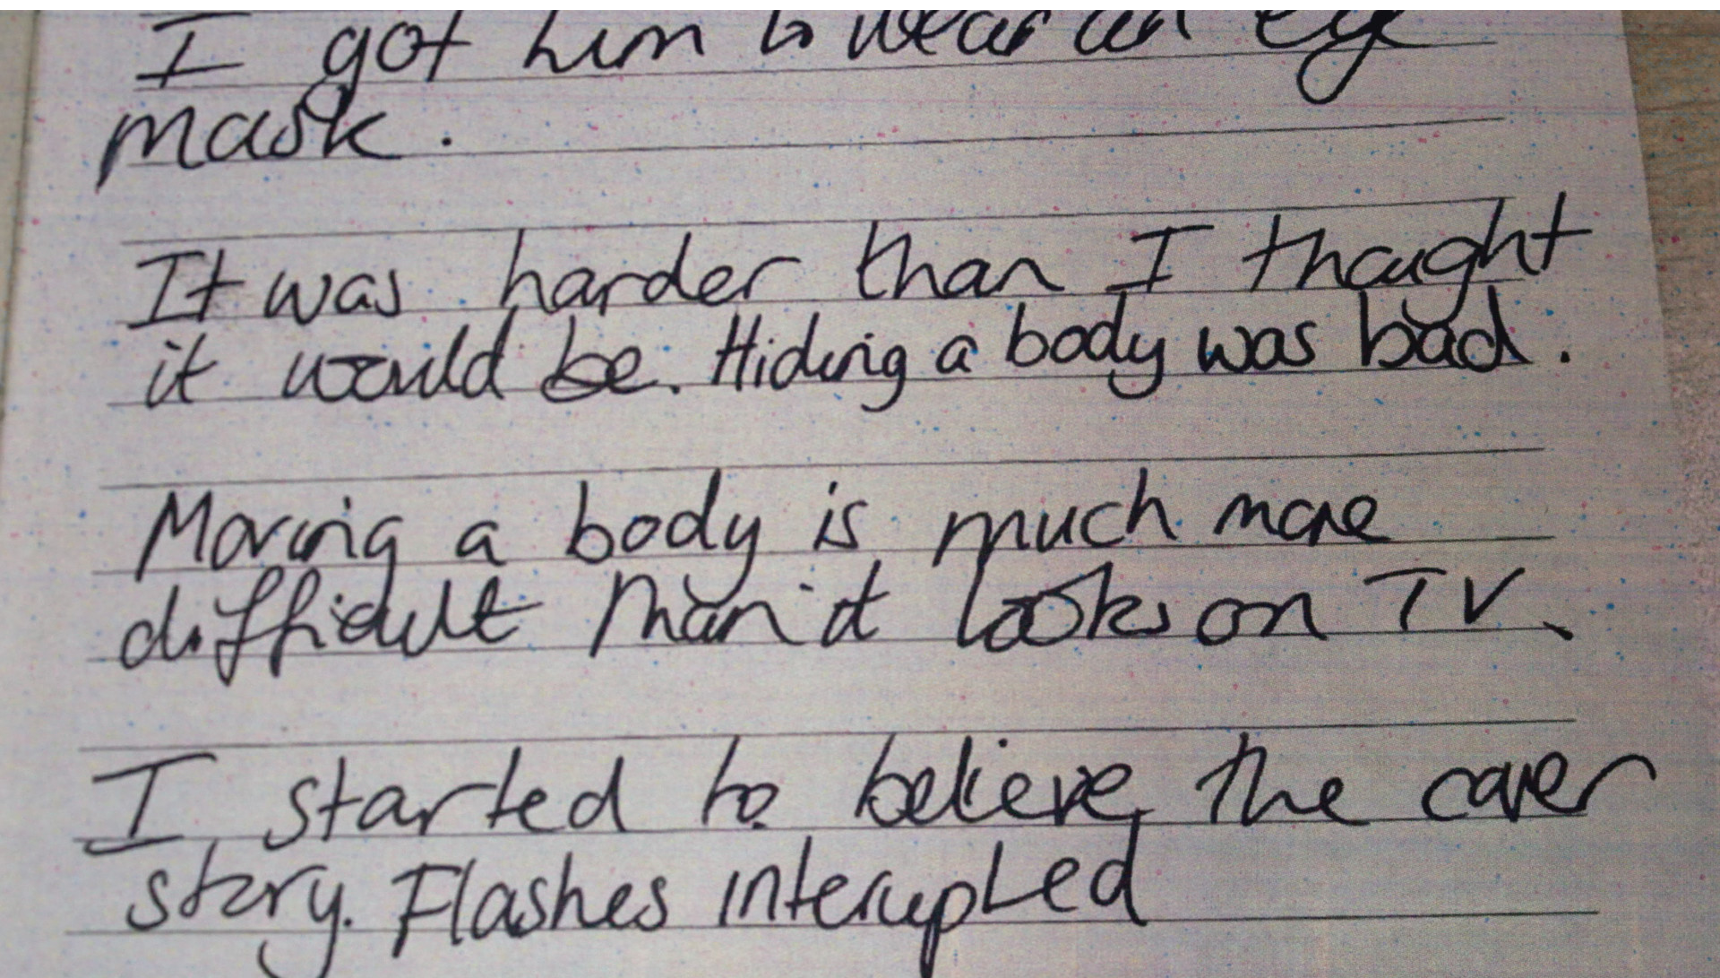 I got him to wear an eye
mask.
It was harder than I thought
it would be. Hiding a body was bad.
Moving a body is much more
difficult than it looks on TV.
I started to believe the cover
story. Flashes interupted